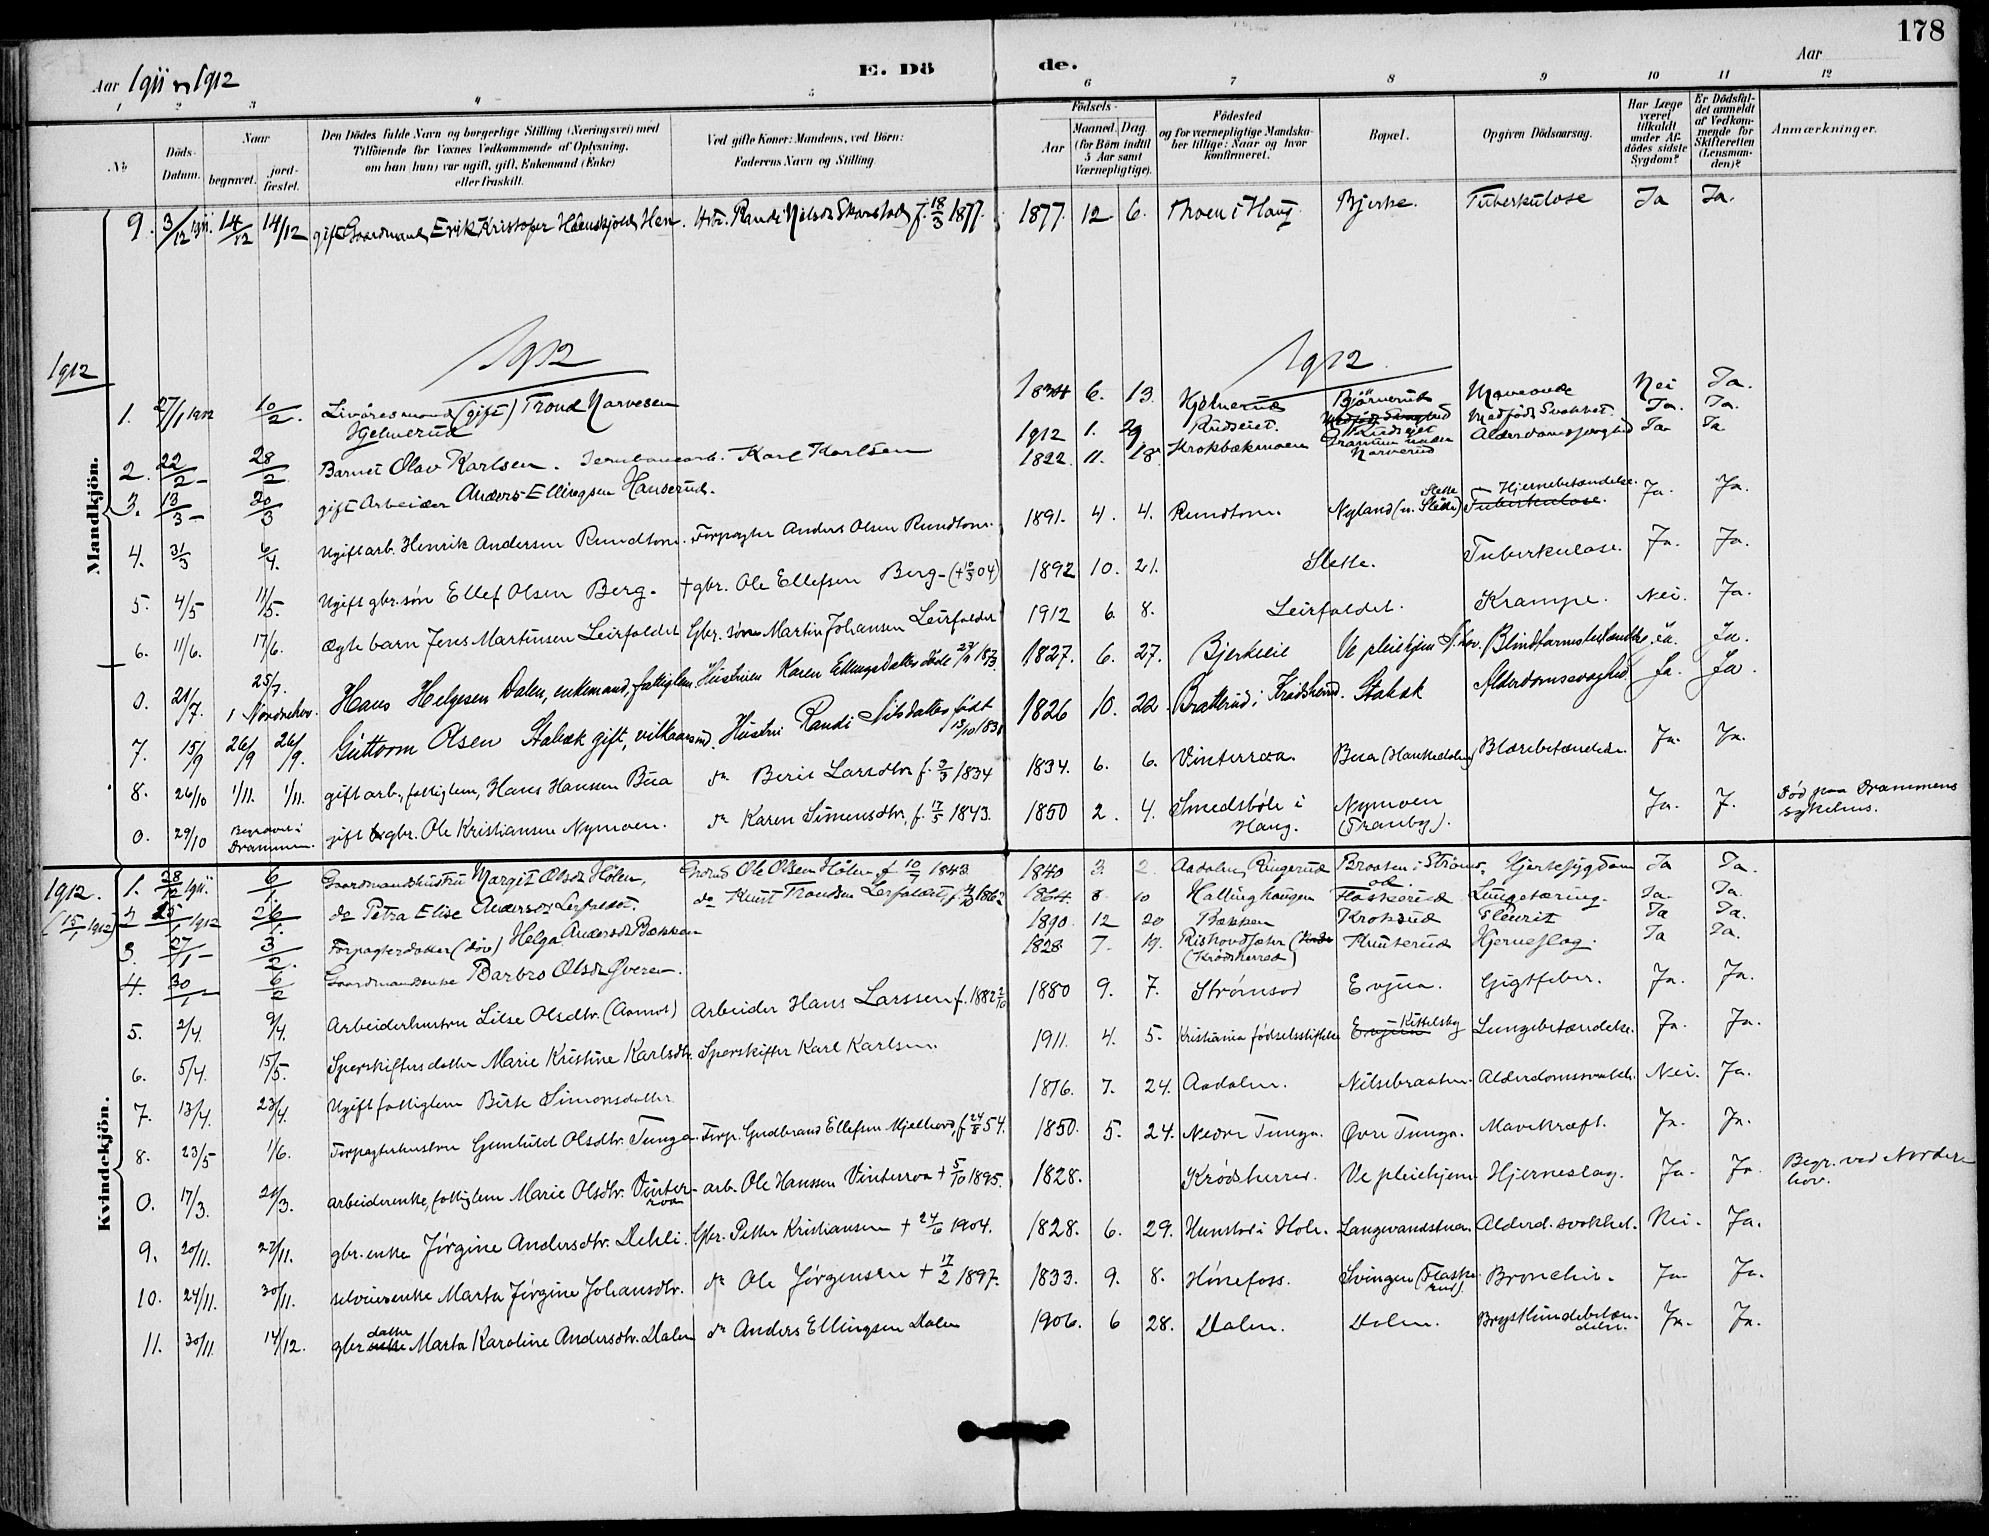 178
Aar 1911 og 1912
E. Dö
de.
Aar
1 2 3 4 5 6 7 8 9 10 11 12
No
Döds-Datum.
Naar
begravet.
jord-fæstet.
Den Dödes fulde Navn og borgerlige Stilling (Næringsvei) med
Tilföiende for Voxnes Vedkommende af Oplysning,
om han (hun) var ugift, gift, Enkemand (Enke)
eller fraskilt.
Ved gifte Koner: Mandens, ved Börn:
Faderens Navn og Stilling.
Födsels-
Aar
Maaned. Dag
(for Börn indtil
5 Aar samt
Værnepligtige).
Födested
og for værnepligtige Mandska-
ber tillige: Naar og hvor
konfirmeret.
Bopæl.
Opgiven Dödsaarsag.
Har Læge
været
tilkaldt
under Af-
dödes sidste
Sygdom?
Er Dödsfal-
det anmeldt
af Vedkom-
mende for
Skifteretten
(Lensman-
den)?
Anmærkninger.
Mandkjön.
9. 3/12 1911. 14/12 14/12 gift Gaardmand Erik Kristofer Hen. Hstr. Randi Nilsdr f. 18/3 1877. 1877. 12 6. Moen i Haug Bjerke. Tuberkulose Ja Ja.
1912
1912 1912
1. 27/1 1912 10/2. Livöresmand (gift) Trond Narvesen Hjelmerud 1834 6. 13. Hjelmerud Björnerud Nei Ja.
2. 22/2 - 28/2 Barnet Olav Karlsen. Jernbanearb. Karl Karlsen 1912 1. 29 Rudseiet. Rudseiet Medfödt Svakhet. Ja. Ja.
3. 13/3 - 20/3 gift Arbeider Anders Ellingsen Hauserud. 1822. 11. 18. Krokbækmoen Tranum under Narverud Alderdomssvaghed Ja Ja
4. 31/3 6/4. Ugift arb. Henrik Andersen Rundtom. Forpagter Anders Olsen Rundtom. 1891. 4. 4. Rundtom. Nyland (u. Slette) Hjernebetændelse. Tuberkulose. Ja. Ja.
5. 4/5 11/5. Ugift gbr.søn Ellef Olsen Berg. + gbr. Ole Ellefsen Berg 1892 10. 21. Slette. Tuberkulose. Ja. Ja.
6. 11/6. 17/6. Ægte barn Jens Martinsen Leirfaldet Gbr. søn Martin Johansen Leirfaldet 1912 6. 8. Leirfaldet. Krampe. Nei. Ja.
0. 21/7. 25/7. i Norderhov. Hans Helgesen Dalen, enkemand, fattiglem Hustruen Karen Ellingsdatter døde 1873 1827. 6. 27. Bjerkeie Ve pleiehjem N.hov. Blindtarmsbetændelse. Ja. Ja.
7. 15/9 26/9 26/9. Guttorm Olsen Stabæk gift, vilkaarsmd. Hustru Randi Nilsdatter født 13/10 1831 1826 10. 22. Bratterud i Krødsherred. Stabæk Alderdomssvaghed Ja. Ja.
8. 26/10 1/11. 1/11. gift arb., fattiglem, Hans Hansen Bua do Berit Larsdtr f. 3/3 1834 1834. 6. 6. Vinterroa. Bua (Haukedalen) Blærebetændelse. Ja. Ja.
0. 29/10 Begravet i Drammen. gift gbr. Ole Kristiansen Nymoen. do Karen Simensdtr. f. 17/5 1843. 1850 2. 4. Smedsbøle i Haug. Nymoen (Tranby). Ja. J. Død paa Drammens sykehus.
Kvindekjön.
1912. 1. 28/12 1911. 6/1. Gaardmandshustru Margit Olsdr Hølen, Gmd Ole Olsen Hølen f. 10/7 1843 1840 3. 2 Aadalen, Ringerud Braaten i Strømso. Hjertesygdom Ja Ja.
(15/1 1912) 2. 1912 26/1. do Petra Elise Andersdr Lerfaldet. do Knut Trondsen Lerfaldet, f. 1862 1864. 8. 10 Hallinghaugen Flaskerud Lungetæring. Ja. Ja.
3. 27/1 - 3/2. Forpagterdatter (döv) Helga Andersdr Bækken 1890. 12 20 Bækken Kroksud Pleurit Ja Ja.
4. 30/1 - 6/2 Gaardmandsenke Barbro Olsdr Överen. 1828 7. 19. (Krödsherred) Knuterud Hjerneslag. Ja Ja.
5. 2/4. 9/4. Arbeiderhustru Lilse Olsdtr. (Aamot) Arbeider Hans Larssen f. 1882 1880 9. 7. Strømsod Evjua. Gigtfeber. Ja. Ja.
6. 5/4. 15/5. Sporskifters datter Marie Kristine Karlsdtr. Sporskifter Karl Karlsen. 1911. 4. 5. Kristiania fødselsstiftelse Evjua Kittelsby Lungebetændelse. Ja. Ja.
7. 13/4. 23/4. Ugift fattiglem Birte Simonsdatter 1876. 7. 24. Aadalen. Nilsebraaten. Alderdomssvakh. Nei. Ja.
8. 23/5 1/6. Forpagterhustru Gunhild Olsdtr. Tunga. Forp. Gudbrand Ellefsen Mjølhovd, f. 24/8 54. 1850. 5. 24. Nedre Tunga. Øvre Tunga. Mavekræft. Ja. Ja.
0. 17/3. 26/3. Arbeiderenke, fattiglem Marie Olsdtr. Vinterroa - arb. Ole Hansen Vinterroa + 5/10 1895. 1828. Krødsherred. Ve pleiehjem Hjerneslag. Ja. Ja Begr. ved Norderhov.
9. 20/11. 27/11. gbr. enke Jørgine Andersdtr. Dehli. Gbr. Petter Kristiansen + 24/6 1904. 1828. 6. 29. Hunstad i Hole. Langevandstuen Alderd. svakhet. Nei. Ja.
10. 24/11. 30/11. selveierenke Marta Jørgine Johansdtr. do Ole Jørgensen + 17/2 1897. 1833. 9. 8. Hønefoss. Svingen (Flaskerud). Bronchit. Ja. Ja.
11. 30/11 14/12. gbr enke datter Marta Karoline Andersdtr. Dalen do Anders Ellingsen Dalen 1906. 6 28. Dalen. Dalen. Brysthindebetændelse. Ja. Ja.